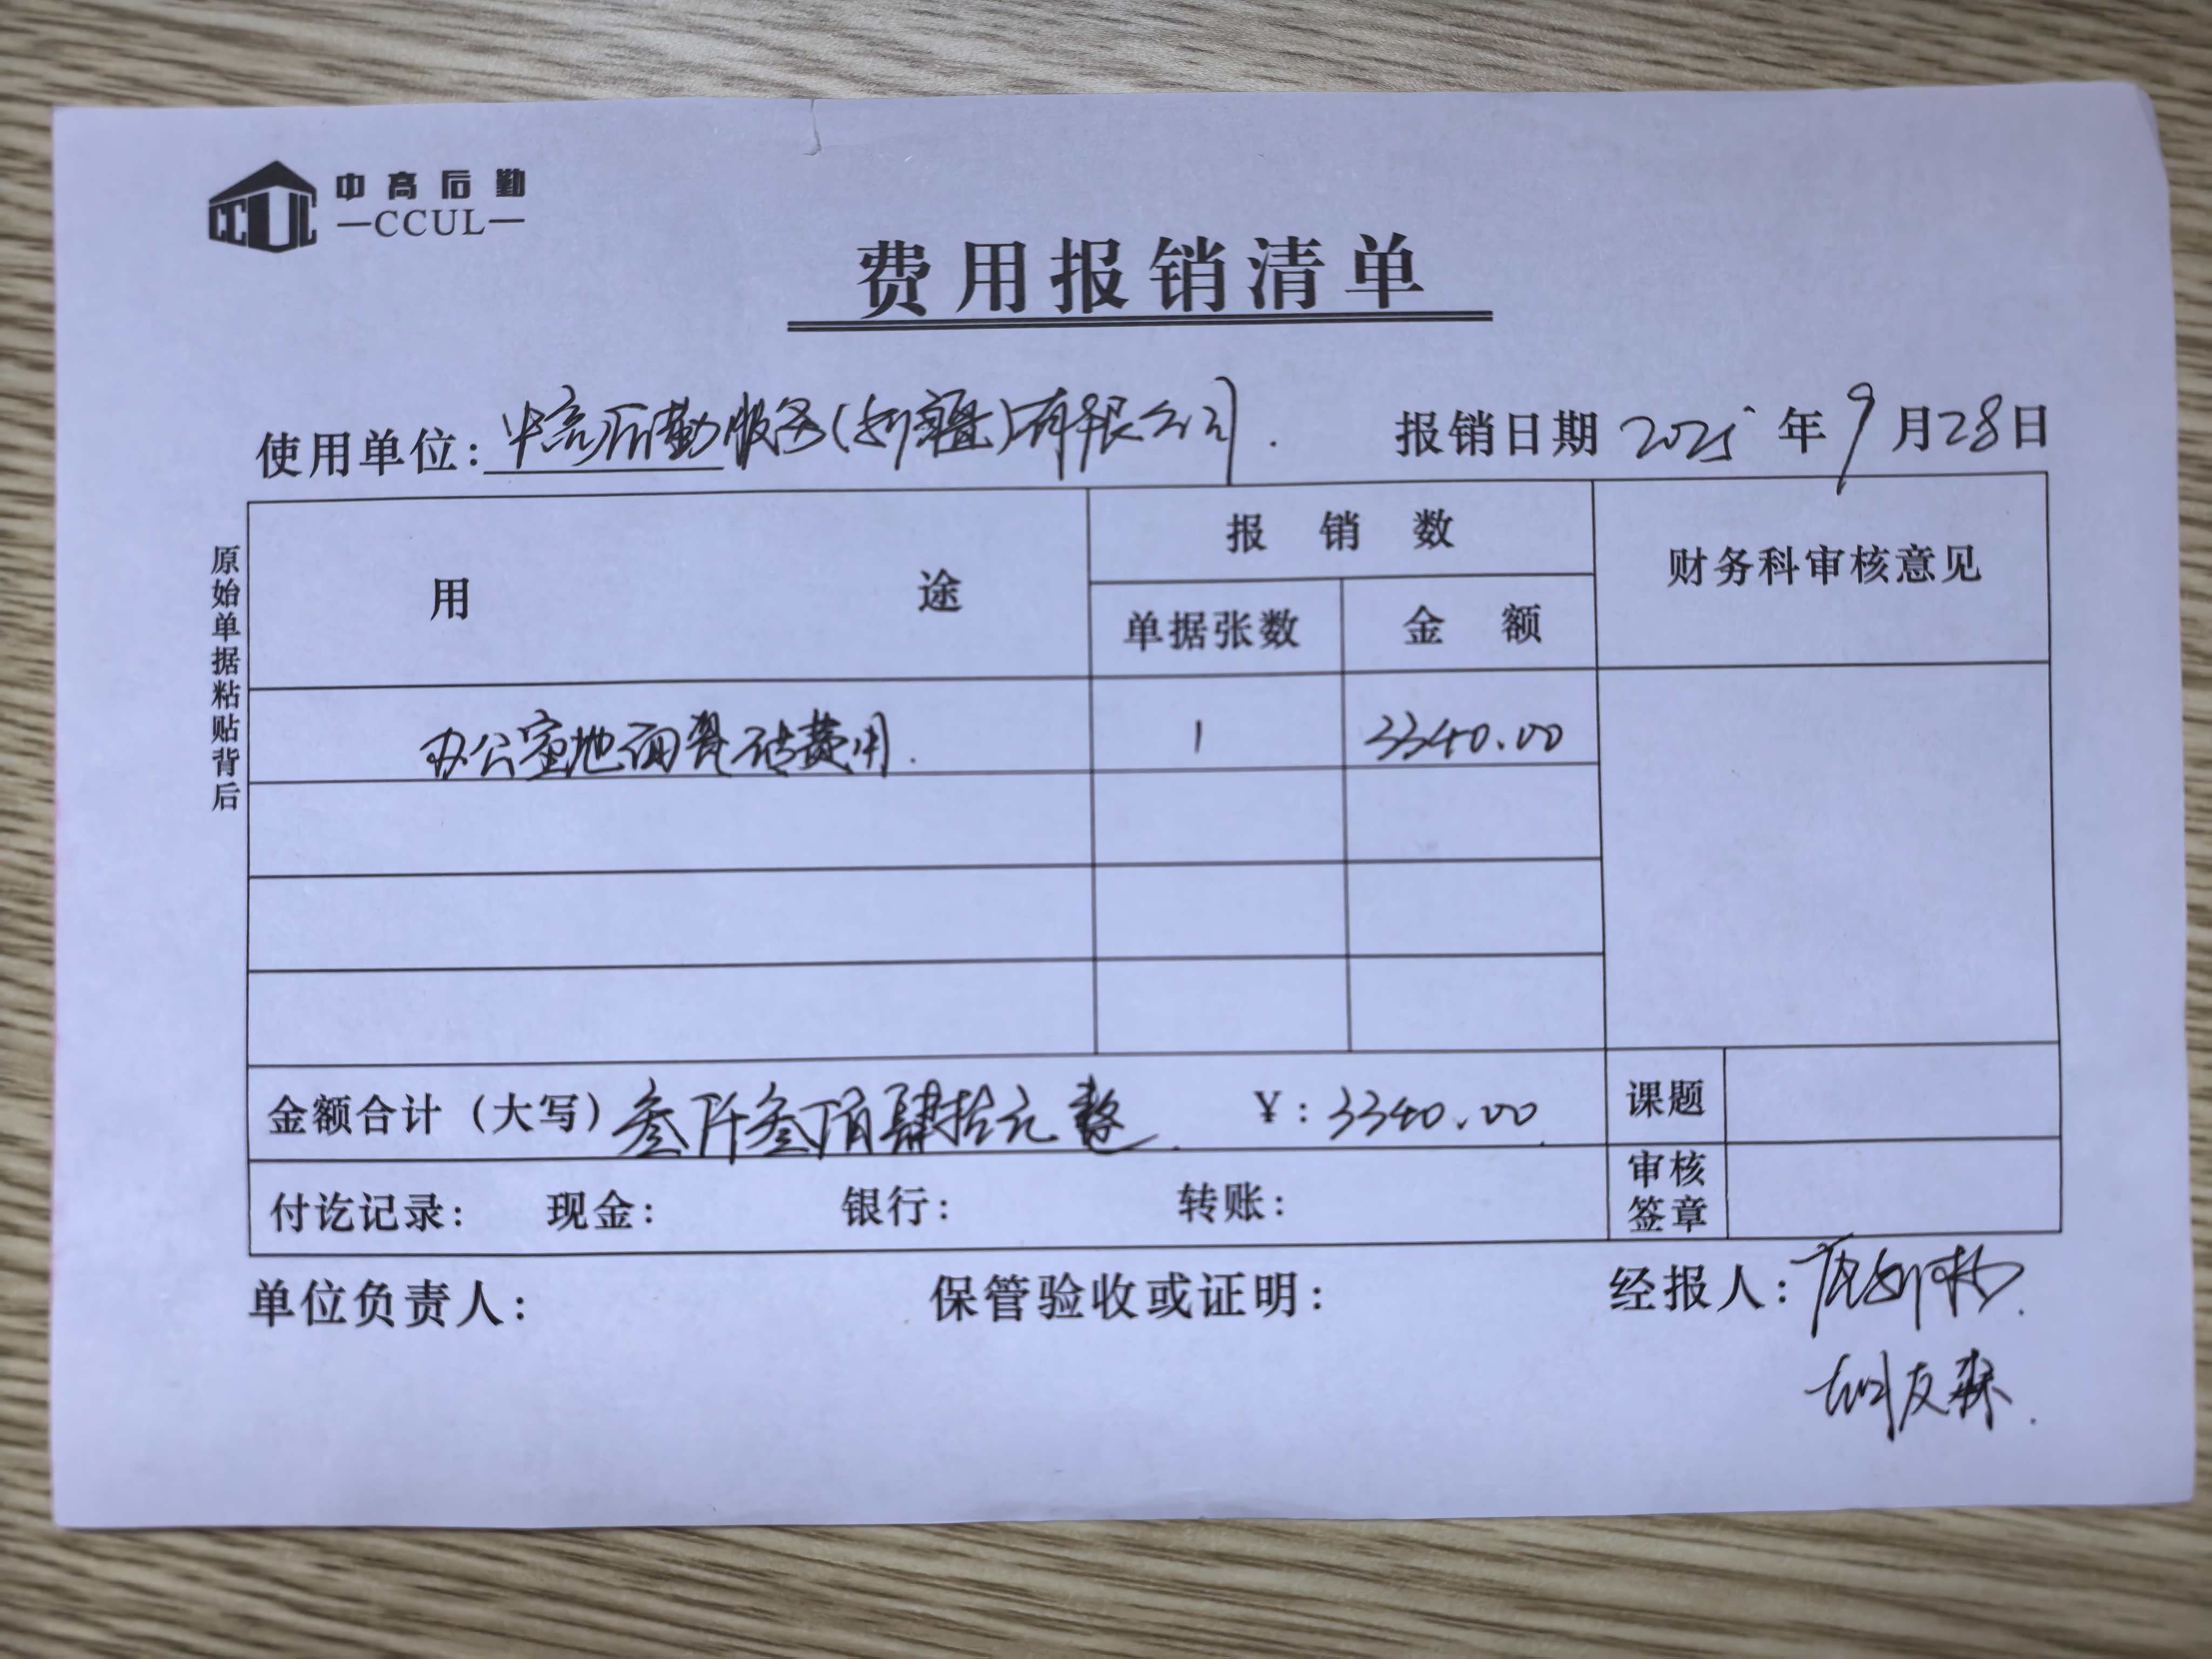 中高后勤
—CCUL—
CCUL
费用报销清单
使用单位：中高后勤服务（新疆）有限公司． 报销日期 2025年9月28日
原始单据粘贴背后
用途 报销数 财务科审核意见
单据张数 金额
办公室地面瓷砖费用． 1 3340.00
金额合计（大写）叁仟叁佰肆拾元整． ￥：3340.00. 课题
付讫记录： 现金： 银行： 转账： 审核签章
单位负责人： 保管验收或证明： 经报人：
胡友森．